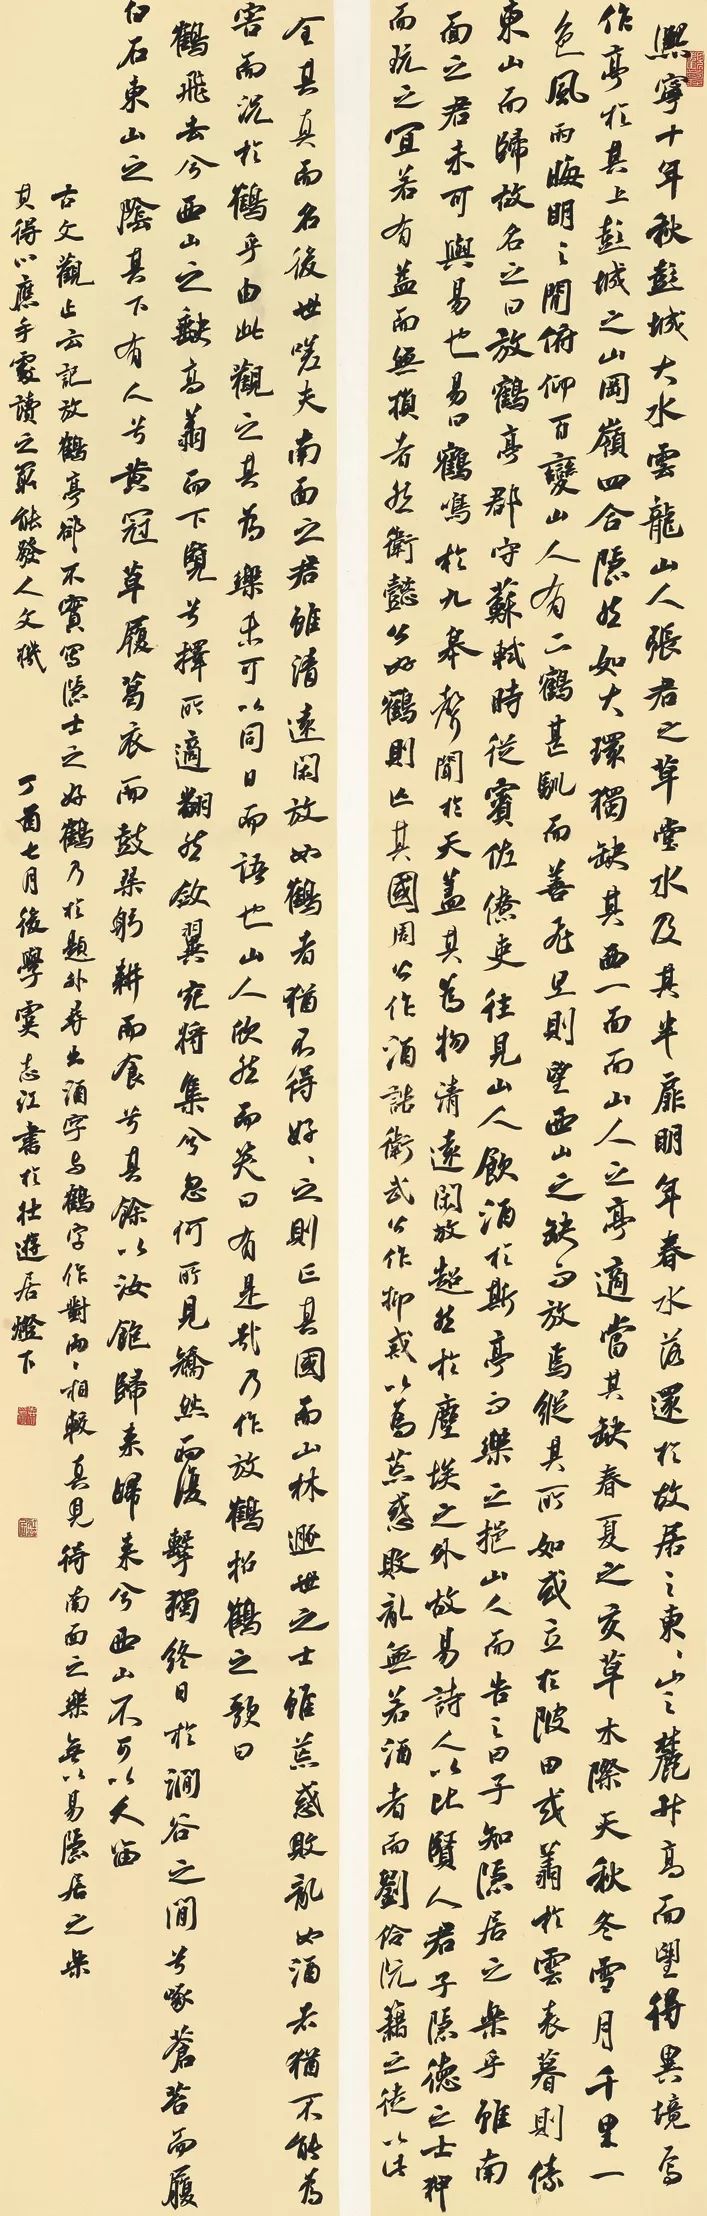 熙寧十年秋彭城大水雲龍山人張君之草堂水及其半扉明年春水落還於故居之東東山之麓升高而望得異境焉
作亭於其上彭城之山岡嶺四合隱然如大環獨缺其西一面而山人之亭適當其缺春夏之交草木際天秋冬雪月千里一
色風雨晦明之間俯仰百變山人有二鶴甚馴而善飛旦則望西山之缺而放焉縱其所如或立於陂田或翥於雲表暮則傃
東山而歸故名之曰放鶴亭郡守蘇軾時從賓佐僚吏往見山人飲酒於斯亭而樂之挹山人而告之曰子知隱居之樂乎雖南
面之君未可與易也易曰鶴鳴於九皋聲聞於天蓋其為物清遠閑放超然於塵埃之外故易詩人以比賢人君子隱德之士狎
而玩之宜若有益而無損者然衛懿公好鶴則亡其國周公作酒誥衛武公作抑戒以為荒惑敗亂無若酒者而劉伶阮籍之徒以此
全其真而名後世嗟夫南面之君雖清遠閑放如鶴者猶不得好好之則亡其國而山林遯世之士雖荒惑敗亂如酒者猶不能為
害而況於鶴乎由此觀之其為樂未可以同日而語也山人欣然而笑曰有是哉乃作放鶴招鶴之歌曰
鶴飛去兮西山之缺高翥而下覽兮擇所適翻然斂翼宛將集兮忽何所見矯然而復擊獨終日於澗谷之間兮啄蒼苔而履
白石東山之陰其下有人兮黃冠草履葛衣而鼓琴躬耕而食兮其餘以汝飽歸來歸來兮西山不可以久留
古文觀止云記放鶴亭卻不實寫隱士之好鶴乃於題外尋出酒字與鶴字作對兩兩相較真見得南面之樂無以易隱居之樂
其得心應手處讀之最能發人文機 丁酉七月後學虞志江書於壯遊居燈下